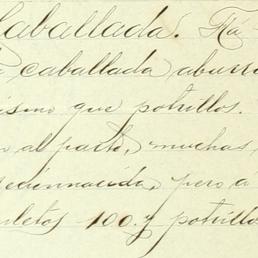 Caballada. Ha
caballada aburr
ismo que potrillos.
al parto, muchas,
pero á
letos 100. y potrillo